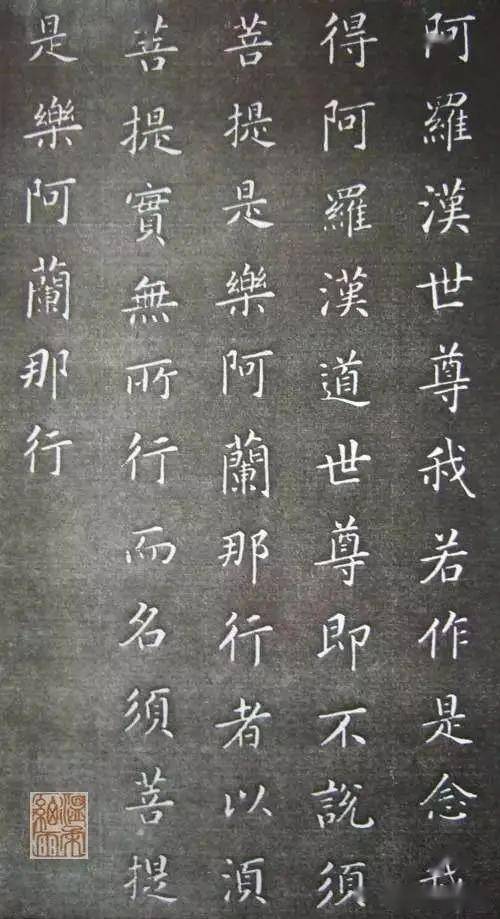 阿羅漢世尊我若作是念我
得阿羅漢道世尊即不說須
菩提是樂阿蘭那行者以湏
菩提實無所行而名須菩提
是樂阿蘭那行